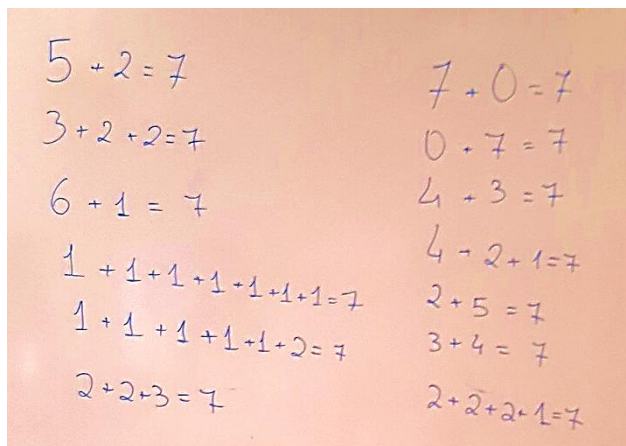 5 + 2 = 7
3 + 2 + 2 = 7
6 + 1 = 7
1 + 1 + 1 + 1 + 1 + 1 + 1 = 7
1 + 1 + 1 + 1 + 1 + 2 = 7
2 + 2 + 3 = 7
7 + 0 = 7
0 + 7 = 7
4 + 3 = 7
4 + 2 + 1 = 7
2 + 5 = 7
3 + 4 = 7
2 + 2 + 2 + 1 = 7